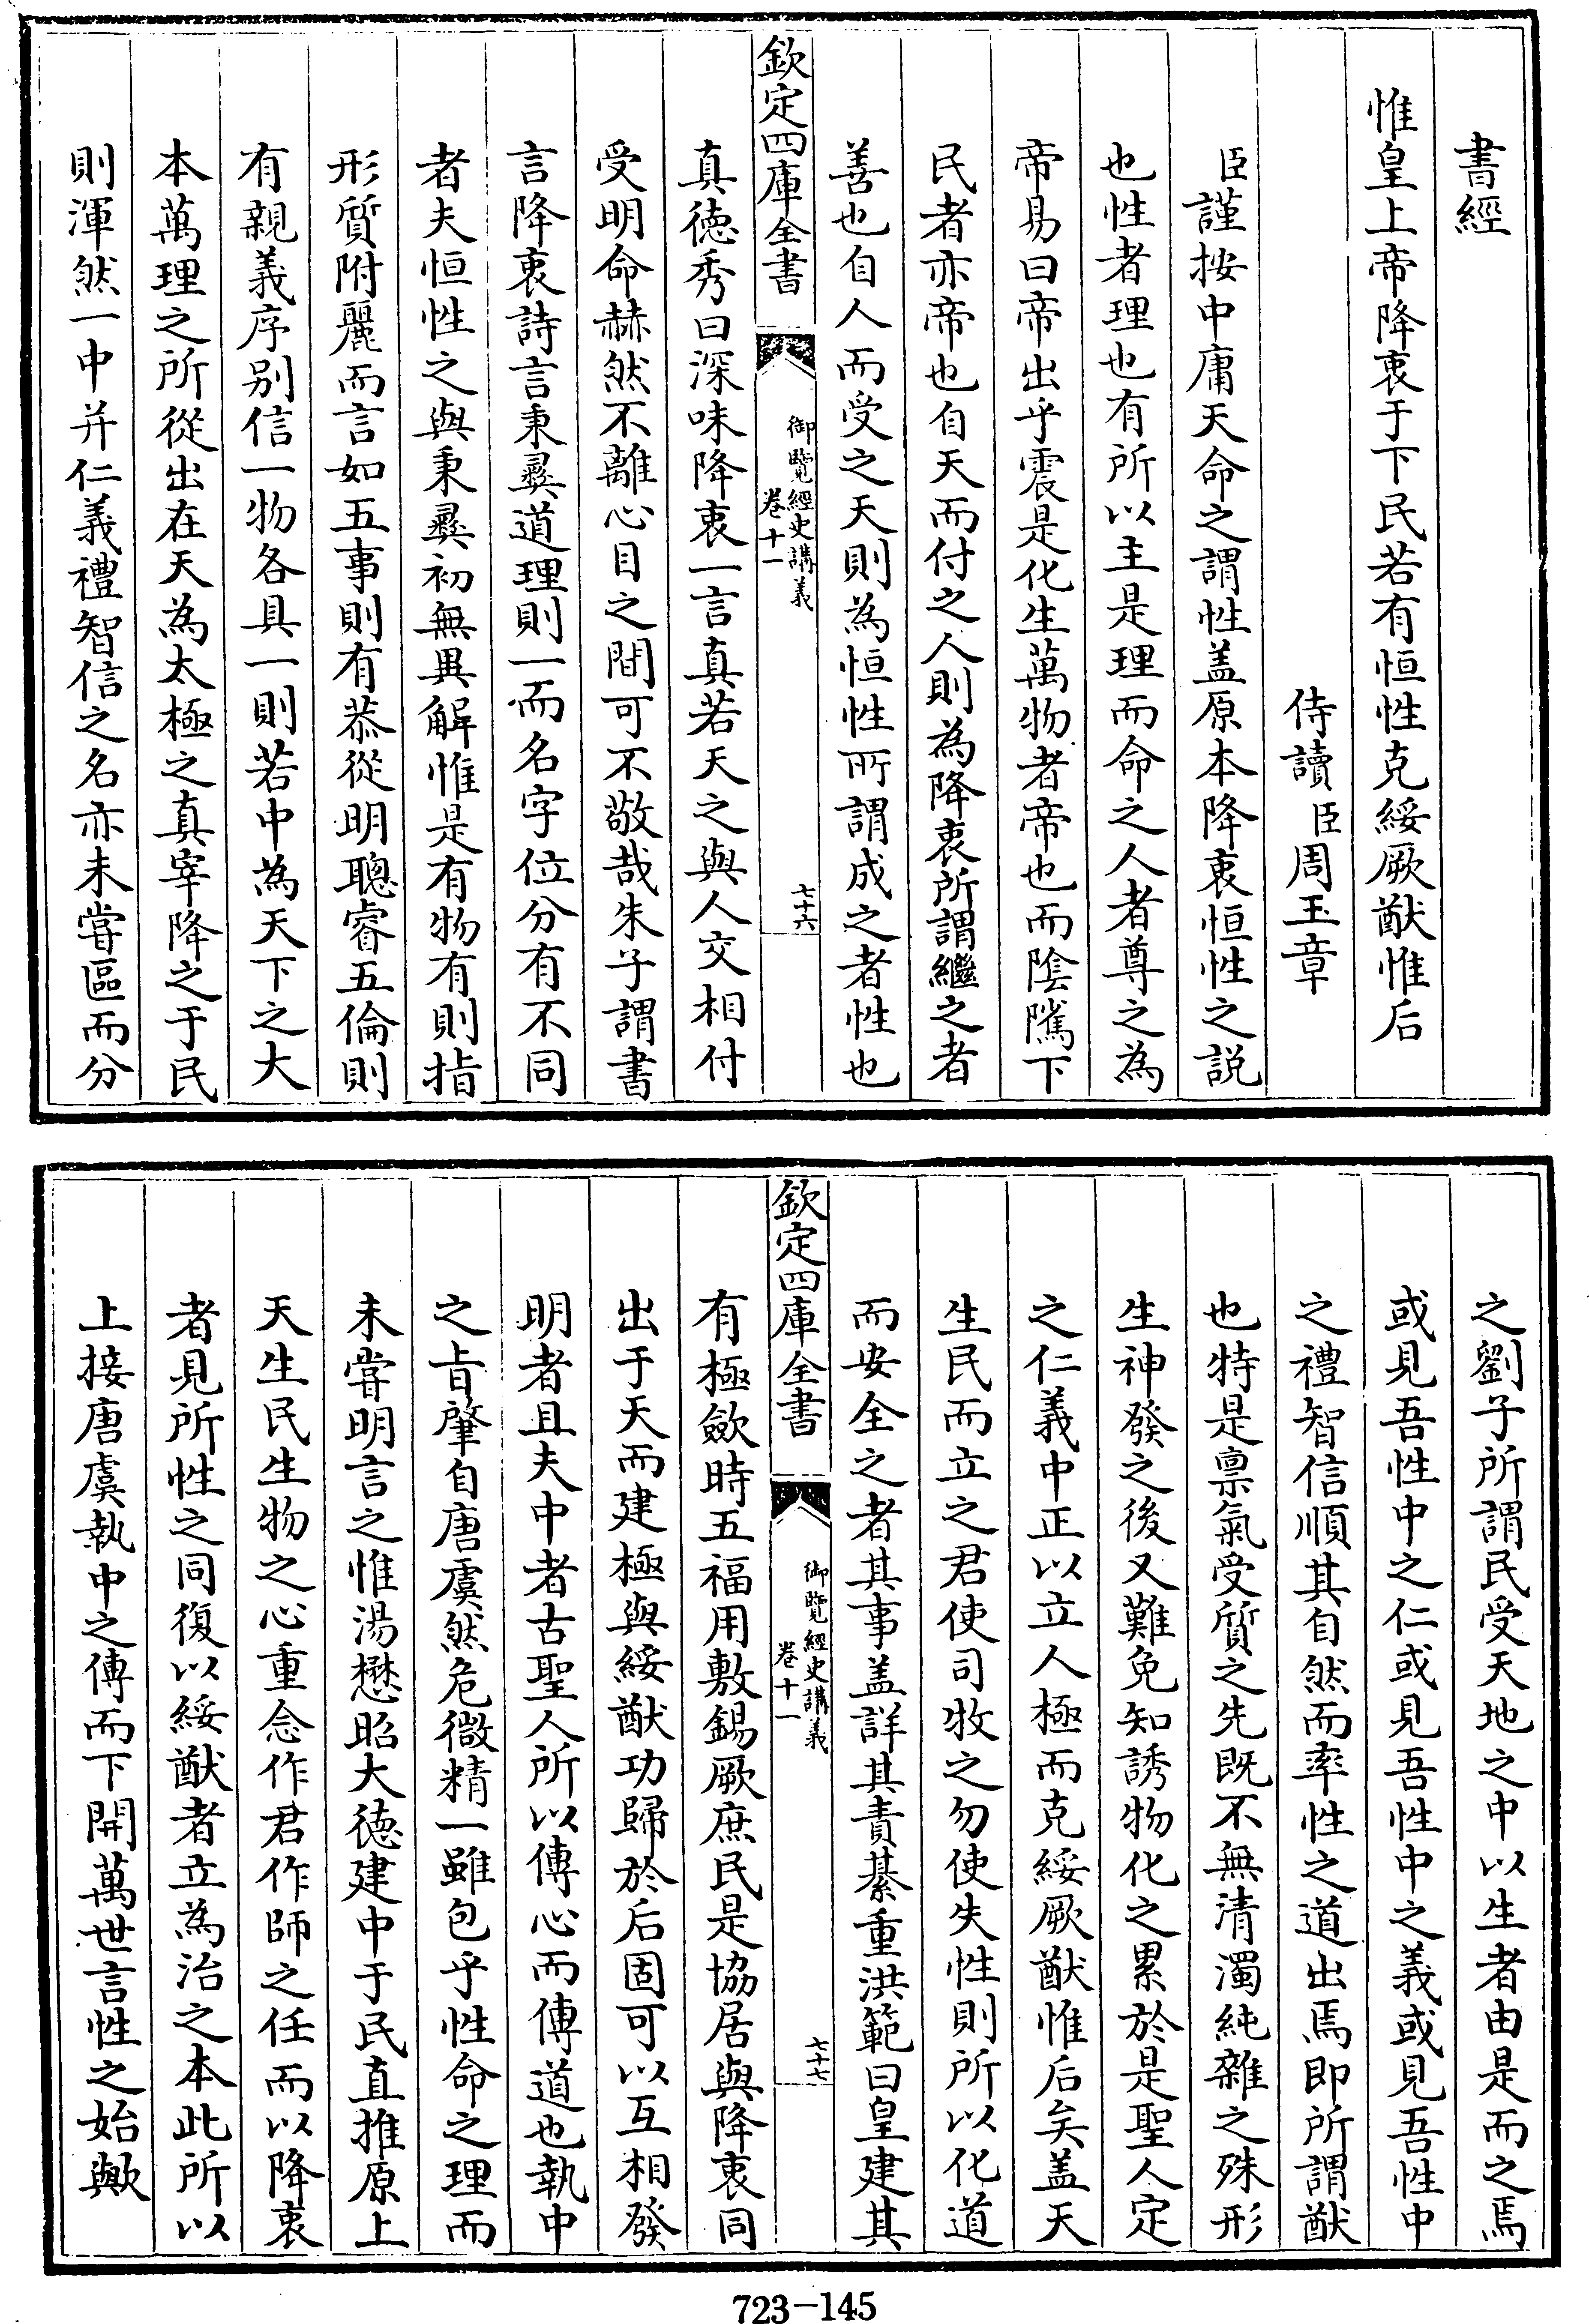 書經
惟皇上帝降衷于下民若有恒性克綏厥猷惟后
侍讀臣周玉章
臣謹按中庸天命之謂性盖原本降衷恒性之説
也性者理也有所以主是理而命之人者尊之為
帝易曰帝出乎震是化生萬物者帝也而隂隲下
民者亦帝也自天而付之人則為降衷所謂繼之者
善也自人而受之天則為恒性所謂成之者性也
欽定四庫全書
御覽經史講義
卷十一
七十六
真徳秀曰深味降衷一言真若天之與人交相付
受明命赫然不離心目之間可不敬哉朱子謂書
言降衷詩言秉彛道理則一而名字位分有不同
者夫恒性之與秉彛初無異解惟是有物有則指
形質附麗而言如五事則有恭從明聰睿五倫則
有親義序别信一物各具一則若中為天下之大
本萬理之所從出在天為太極之真宰降之于民
則渾然一中并仁義禮智信之名亦未甞區而分
之劉子所謂民受天地之中以生者由是而之焉
或見吾性中之仁或見吾性中之義或見吾性中
之禮智信順其自然而率性之道出焉即所謂猷
也特是禀氣受質之先既不無清濁純雜之殊形
生神發之後又難免知誘物化之累於是聖人定
之仁義中正以立人極而克綏厥猷惟后矣盖天
生民而立之君使司牧之勿使失性則所以化道
而安全之者其事盖詳其責綦重洪範曰皇建其
欽定四庫全書
御覽經史講義
卷十一
七十七
有極歛時五福用敷錫厥庶民是協居與降衷同
出于天而建極與綏猷功歸於后固可以互相發
明者且夫中者古聖人所以傳心而傳道也執中
之㫖肇自唐虞然危微精一雖包乎性命之理而
未甞明言之惟湯懋昭大徳建中于民直推原上
天生民生物之心重念作君作師之任而以降衷
者見所性之同復以綏猷者立為治之本此所以
上接唐虞執中之傳而下開萬世言性之始歟
723-145